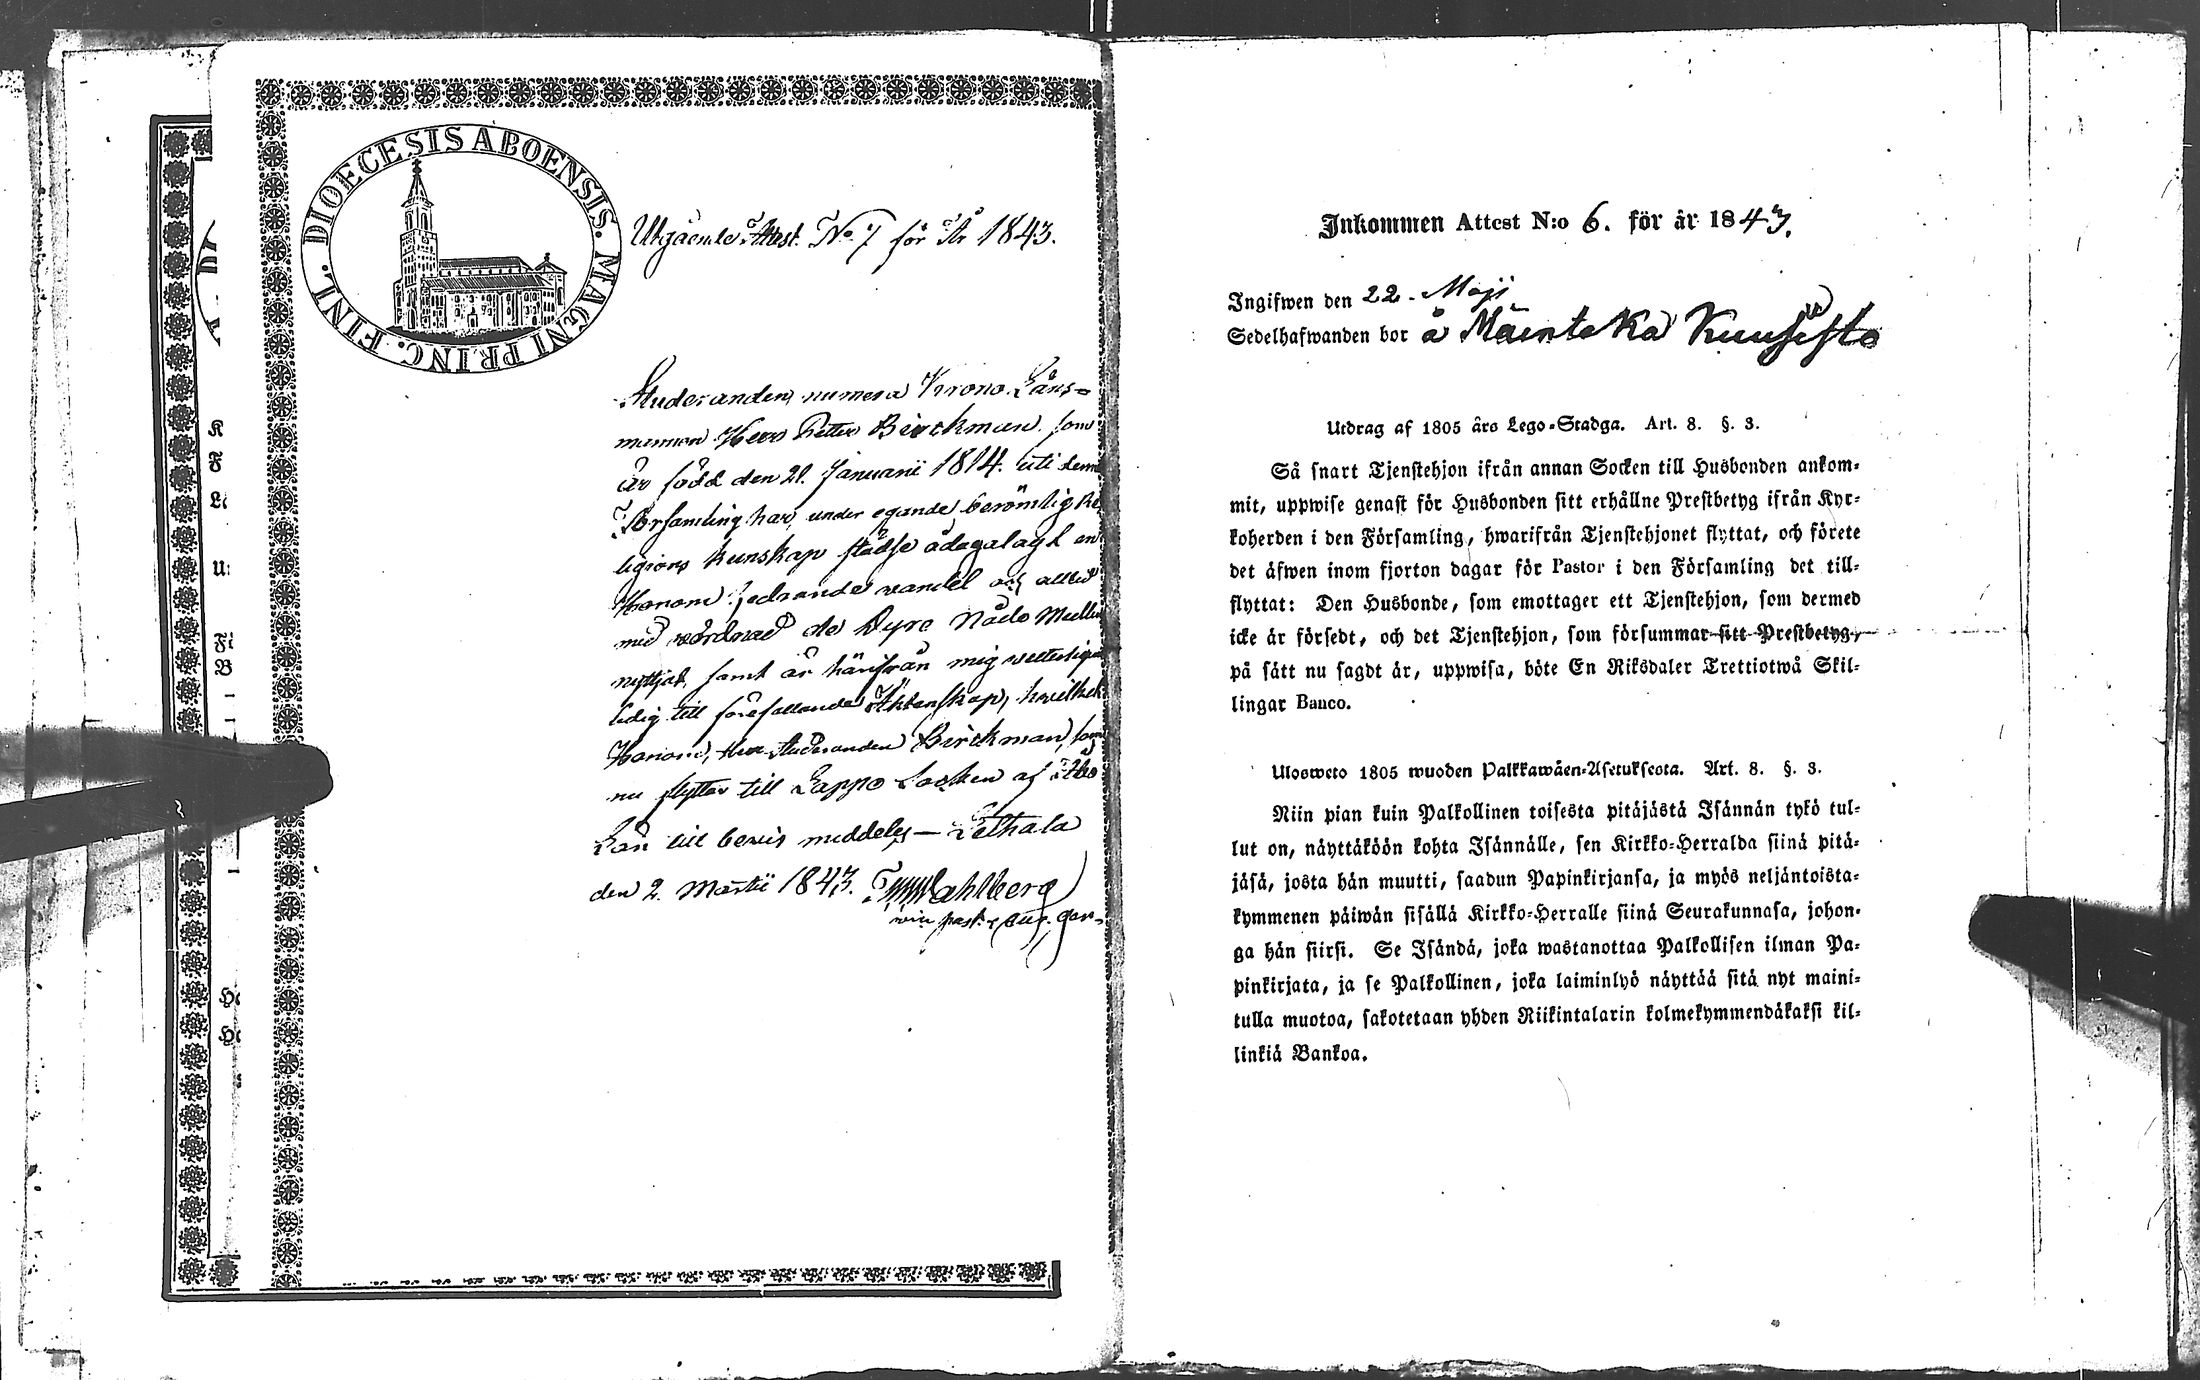 DIOECESIS ABOENSIS. MAGNI PRINC. FINL.
Utgående Attest. No 7 för År 1843.
Studeranden, numera Krono Läns-
mannen Herr Petter Birckman, som
är född den 21. Januarii 1814. uti denna
Församling har, under egande berömlig Re-
ligions kunskap städse ådagalagt en
Honom hedrande vandel och alltid
med vördnad de Dyre Nåde Medlen
nyttjat, samt är härifrån mig vetterligen
ledig till förefallande Äktenskap, hvilket
Honom, Herr Studeranden Birckman, som
nu flyttar till Lappo Socken af Åbo
Län till bevis meddelas — Lethala
den 2. Martii 1843. Wahlberg
vice past.
Inkommen Attest N:o 6. för år 1843.
Ingifwen den 22. Maji
Sedelhafwanden bor å Mäenteka Kuusisto
Utdrag af 1805 års Lego-Stadga. Art. 8. §. 3.
Så snart Tjenstehjon ifrån annan Socken till Husbonden ankom-
mit, uppwise genast för Husbonden sitt erhållne Prestbetyg ifrån Kyr-
koherden i den Församling, hwarifrån Tjenstehjonet flyttat, och förete
det äfwen inom fjorton dagar för Pastor i den Församling det till-
flyttat: Den Husbonde, som emottager ett Tjenstehjon, som dermed
icke är försedt, och det Tjenstehjon, som försummar sitt Prestbetyg,
på sätt nu sagdt är, uppwisa, böte En Riksdaler Trettiotwå Skil-
lingar Banco.
Ulosweto 1805 wuoden Palkkawäen-Asetuksesta. Art. 8. §. 3.
Niin pian kuin Palkollinen toisesta pitäjästä Isännän tykö tul-
lut on, näyttäköön kohta Isännälle, sen Kirkko-Herralda siinä pitä-
jäsä, josta hän muutti, saadun Papinkirjansa, ja myös neljäntoista-
kymmenen päiwän sisällä Kirkko-Herralle siinä Seurakunnasa, johon-
ga hän siirsi. Se Isändä, joka wastanottaa Palkollisen ilman Pa-
pinkirjata, ja se Palkollinen, joka laiminlyö näyttää sitä nyt maini-
tulla muotoa, sakotetaan yhden Riikintalarin kolmekymmendäkaksi kil-
linkiä Bankoa.